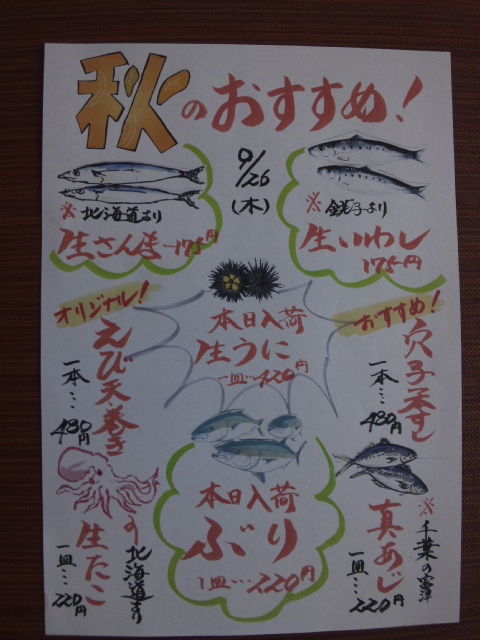 秋のおすすめ!
9/26
(木)
※北海道より
生さんま…175円
※銚子より
生いわし
175円
本日入荷
生うに
一皿…420円
オリジナル!
えび天巻き
一本…480円
おすすめ!
穴子天すし
一本…480円
本日入荷
ぶり
1皿…220円
の北海道より
生たこ
一皿…220円
※千葉の富津
真あじ
一皿…220円